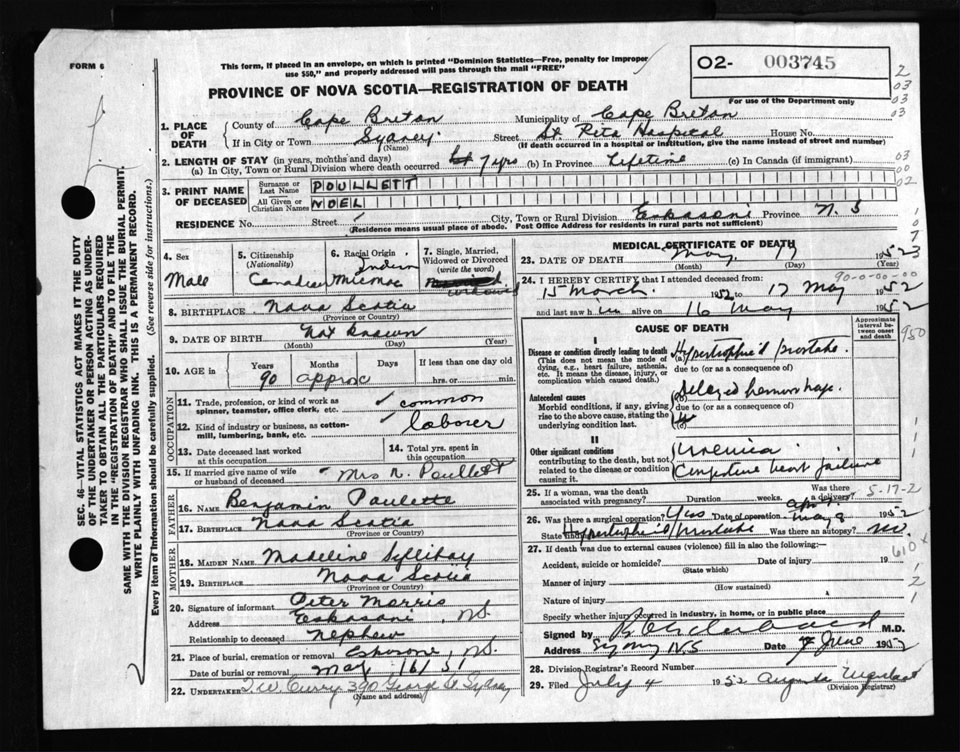 FORM 6
This form, if placed in an envelope, on which is printed "Dominion Statistics—Free, penalty for improper
use $50," and properly addressed will pass through the mail "FREE"
O2- 003745
PROVINCE OF NOVA SCOTIA—REGISTRATION OF DEATH
For use of the Department only
2
03
03
03
1. PLACE OF DEATH County of Cape Breton Municipality of Cape Breton
If in City or Town Sydney Street St. Rita Hospital House No.
(Name) (If death occurred in a hospital or institution, give the name instead of street and number)
2. LENGTH OF STAY (in years, months and days)
(a) In City, Town or Rural Division where death occurred 7 yrs (b) In Province Lifetime (c) In Canada (if immigrant)
03
00
02
3. PRINT NAME OF DECEASED Surname or Last Name POULLETT
All Given or Christian Names NOEL
RESIDENCE No. Street City, Town or Rural Division Eskasoni Province N.S
(Residence means usual place of abode. Post Office Address for residents in rural parts not sufficient)
4. Sex Male
5. Citizenship (Nationality) Canadian
6. Racial Origin Indian Micmac
7. Single, Married, Widowed or Divorced (write the word) Widowed
8. BIRTHPLACE Nova Scotia
(Province or Country)
9. DATE OF BIRTH Not known
(Month) (Day) (Year)
10. AGE in Years Months Days If less than one day
90 approx hrs. or min.
OCCUPATION
11. Trade, profession, or kind of work as spinner, teamster, office clerk, etc. common
12. Kind of industry or business, as cotton-mill, lumbering, bank, etc. laborer
13. Date deceased last worked at this occupation
14. Total yrs. spent in this occupation
15. If married give name of wife or husband of deceased Mrs N. Poullett
FATHER
16. Name Benjamin Paulette
17. Birthplace Nova Scotia
(Province or Country)
MOTHER
18. Maiden Name Madeline
19. Birthplace Nova Scotia
(Province or Country)
20. Signature of informant Peter Morris
Address Eskasoni, N.S.
Relationship to deceased Nephew
21. Place of burial, cremation or removal Eskasoni, N.S.
Date of burial or removal May 16/51
22. UNDERTAKER T.W. Curry 390 George St Sydney
(Name and address)
MEDICAL CERTIFICATE OF DEATH
23. DATE OF DEATH May 17 1952
(Month) (Day) (Year)
24. I HEREBY CERTIFY that I attended deceased from: 90-0-00-00
15 March 1952 to 17 May 1952
and last saw him alive on 16 May 1952
CAUSE OF DEATH
Approximate interval between onset and death
I
Disease or condition directly leading to death
(This does not mean the mode of dying, e.g., heart failure, asthenia, etc. It means the disease, injury, or complication which caused death.)
(a) Hypertrophie'd prostate.
due to (or as a consequence of)
Antecedent causes
Morbid conditions, if any, giving rise to the above cause, stating the underlying condition last.
Delayed hemorrhage.
due to (or as a consequence of)
II
Other significant conditions
contributing to the death, but not related to the disease or condition causing it.
Uremia
Congestive heart failure
950
25. If a woman, was the death associated with pregnancy? Duration weeks. Was there a delivery? 5-17-2
26. Was there a surgical operation? Yes Date of operation May 8 1952
State Hypertrophie'd prostate Was there an autopsy? no.
27. If death was due to external causes (violence) fill in also the following:—
610 x
Accident, suicide or homicide? Date of injury 19
(State which)
Manner of injury
(How sustained)
Nature of injury
Specify whether injury occurred in industry, in home, or in public place
Signed by M.D.
Address Sydney N.S Date 4 June 1952
28. Division Registrar's Record Number
29. Filed July 4 1952 Augusta
(Division Registrar)
SEC. 46—VITAL STATISTICS ACT MAKES IT THE DUTY
OF THE UNDERTAKER OR PERSON ACTING AS UNDER-
TAKER TO OBTAIN ALL THE PARTICULARS REQUIRED
IN THE "REGISTRATION OF DEATH" AND TO FILE THE
SAME WITH THE DIVISION REGISTRAR WHO SHALL ISSUE THE BURIAL PERMIT.
WRITE PLAINLY WITH UNFADING INK. THIS IS A PERMANENT RECORD.
Every item of information should be carefully supplied. (See reverse side for instructions.)